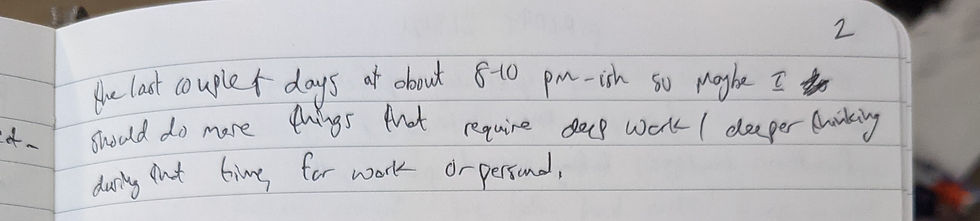 2
the last couple of days at about 8-10 pm-ish so maybe I
should do more things that require deep work / deeper thinking
during that time, for work or personal.